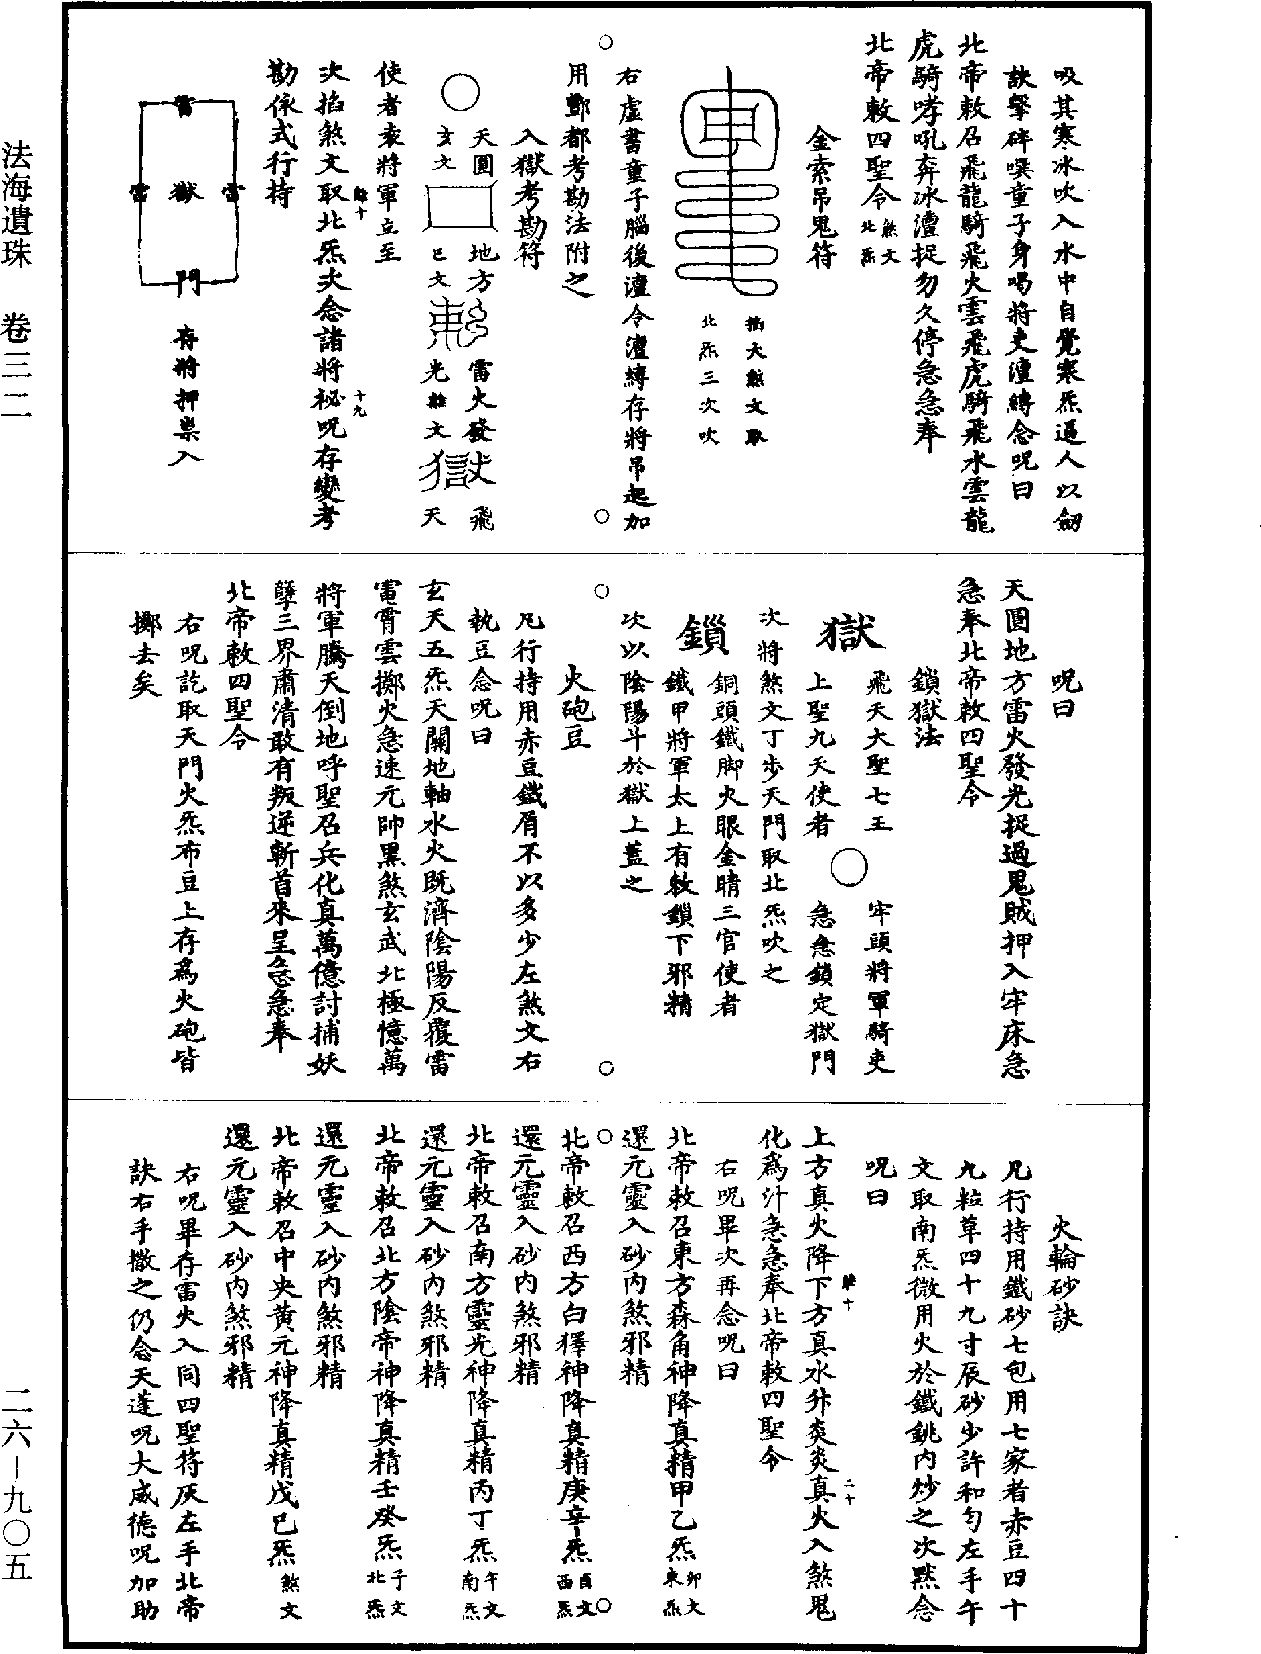 吸其寒冰吹入水中自覺寒炁逼人以劒
訣擊碎噀童子身喝將吏澶縛念呪曰
北帝敕召飛龍騎飛火雲飛虎騎飛水雲龍
虎騎哮吼奔冰澶捉勿久停急急奉
北帝敕四聖令煞文北炁
金索吊鬼符
掐大煞文取
北炁三次吹
右虛書童子腦後澶令澶縛存將吊起加
用酆都考勘法附之
入獄考勘符
天圓 地方 雷火發 飛
玄文 巳文 光 雛文 獄 天
使者袁將軍立至
次掐煞文取北炁次念諸將祕呪存變考
勘依式行持
雷
雷 獄 雷
門
存將押祟入
呪曰
天圓地方雷火發光捉過鬼賊押入牢床急
急奉北帝敕四聖令
鎖獄法
獄
飛天大聖七王 牢頭將軍騎吏
上聖九天使者 急急鎖定獄門
次將煞文丁步天門取北炁吹之
鎖
銅頭鐵脚火眼金睛三官使者
鐵甲將軍太上有敕鎖下邪精
次以陰陽斗於獄上蓋之
火砲豆
凡行持用赤豆鐵屑不以多少左煞文右
執豆念呪曰
玄天五炁天關地軸水火既濟陰陽反覆雷
電霄雲擲火急速元帥黑煞玄武北極億萬
將軍騰天倒地呼聖召兵化真萬億討捕妖
孽三界肅清敢有叛逆斬首來呈急急奉
北帝敕四聖令
右呪訖取天門火炁布豆上存為火砲皆
擲去矣
火輪砂訣
凡行持用鐵砂七包用七家者赤豆四十
九粒草四十九寸辰砂少許和勻左手午
文取南炁微用火於鐵銚內炒之次黙念
呪曰
上方真火降下方真水升炎炎真火入煞鬼
化為汁急急奉北帝敕四聖令
右呪畢次再念呪曰
北帝敕召東方森角神降真精甲乙炁卯文東炁
還元靈入砂內煞邪精
北帝敕召西方白獰神降真精庚辛炁酉文西炁
還元靈入砂內煞邪精
北帝敕召南方靈光神降真精丙丁炁午文南炁
還元靈入砂內煞邪精
北帝敕召北方陰帝神降真精壬癸炁子文北炁
還元靈入砂內煞邪精
北帝敕召中央黄元神降真精戊巳炁煞文
還元靈入砂內煞邪精
右呪畢存雷火入同四聖符灰左手北帝
訣右手撒之仍念天蓬呪大威德呪加助
法海遺珠 卷三二
二六－九〇五